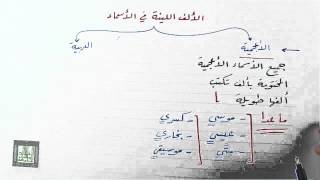 الألف اللينة في الأسماء
الأعجمية
العربية
جميع الأسماء الأعجمية
المحتوية بألف تكتب
ألفها طويلة ا
ما عدا
- موسى - كسرى
- عيسى - بخارى
- متّى - موسيقى